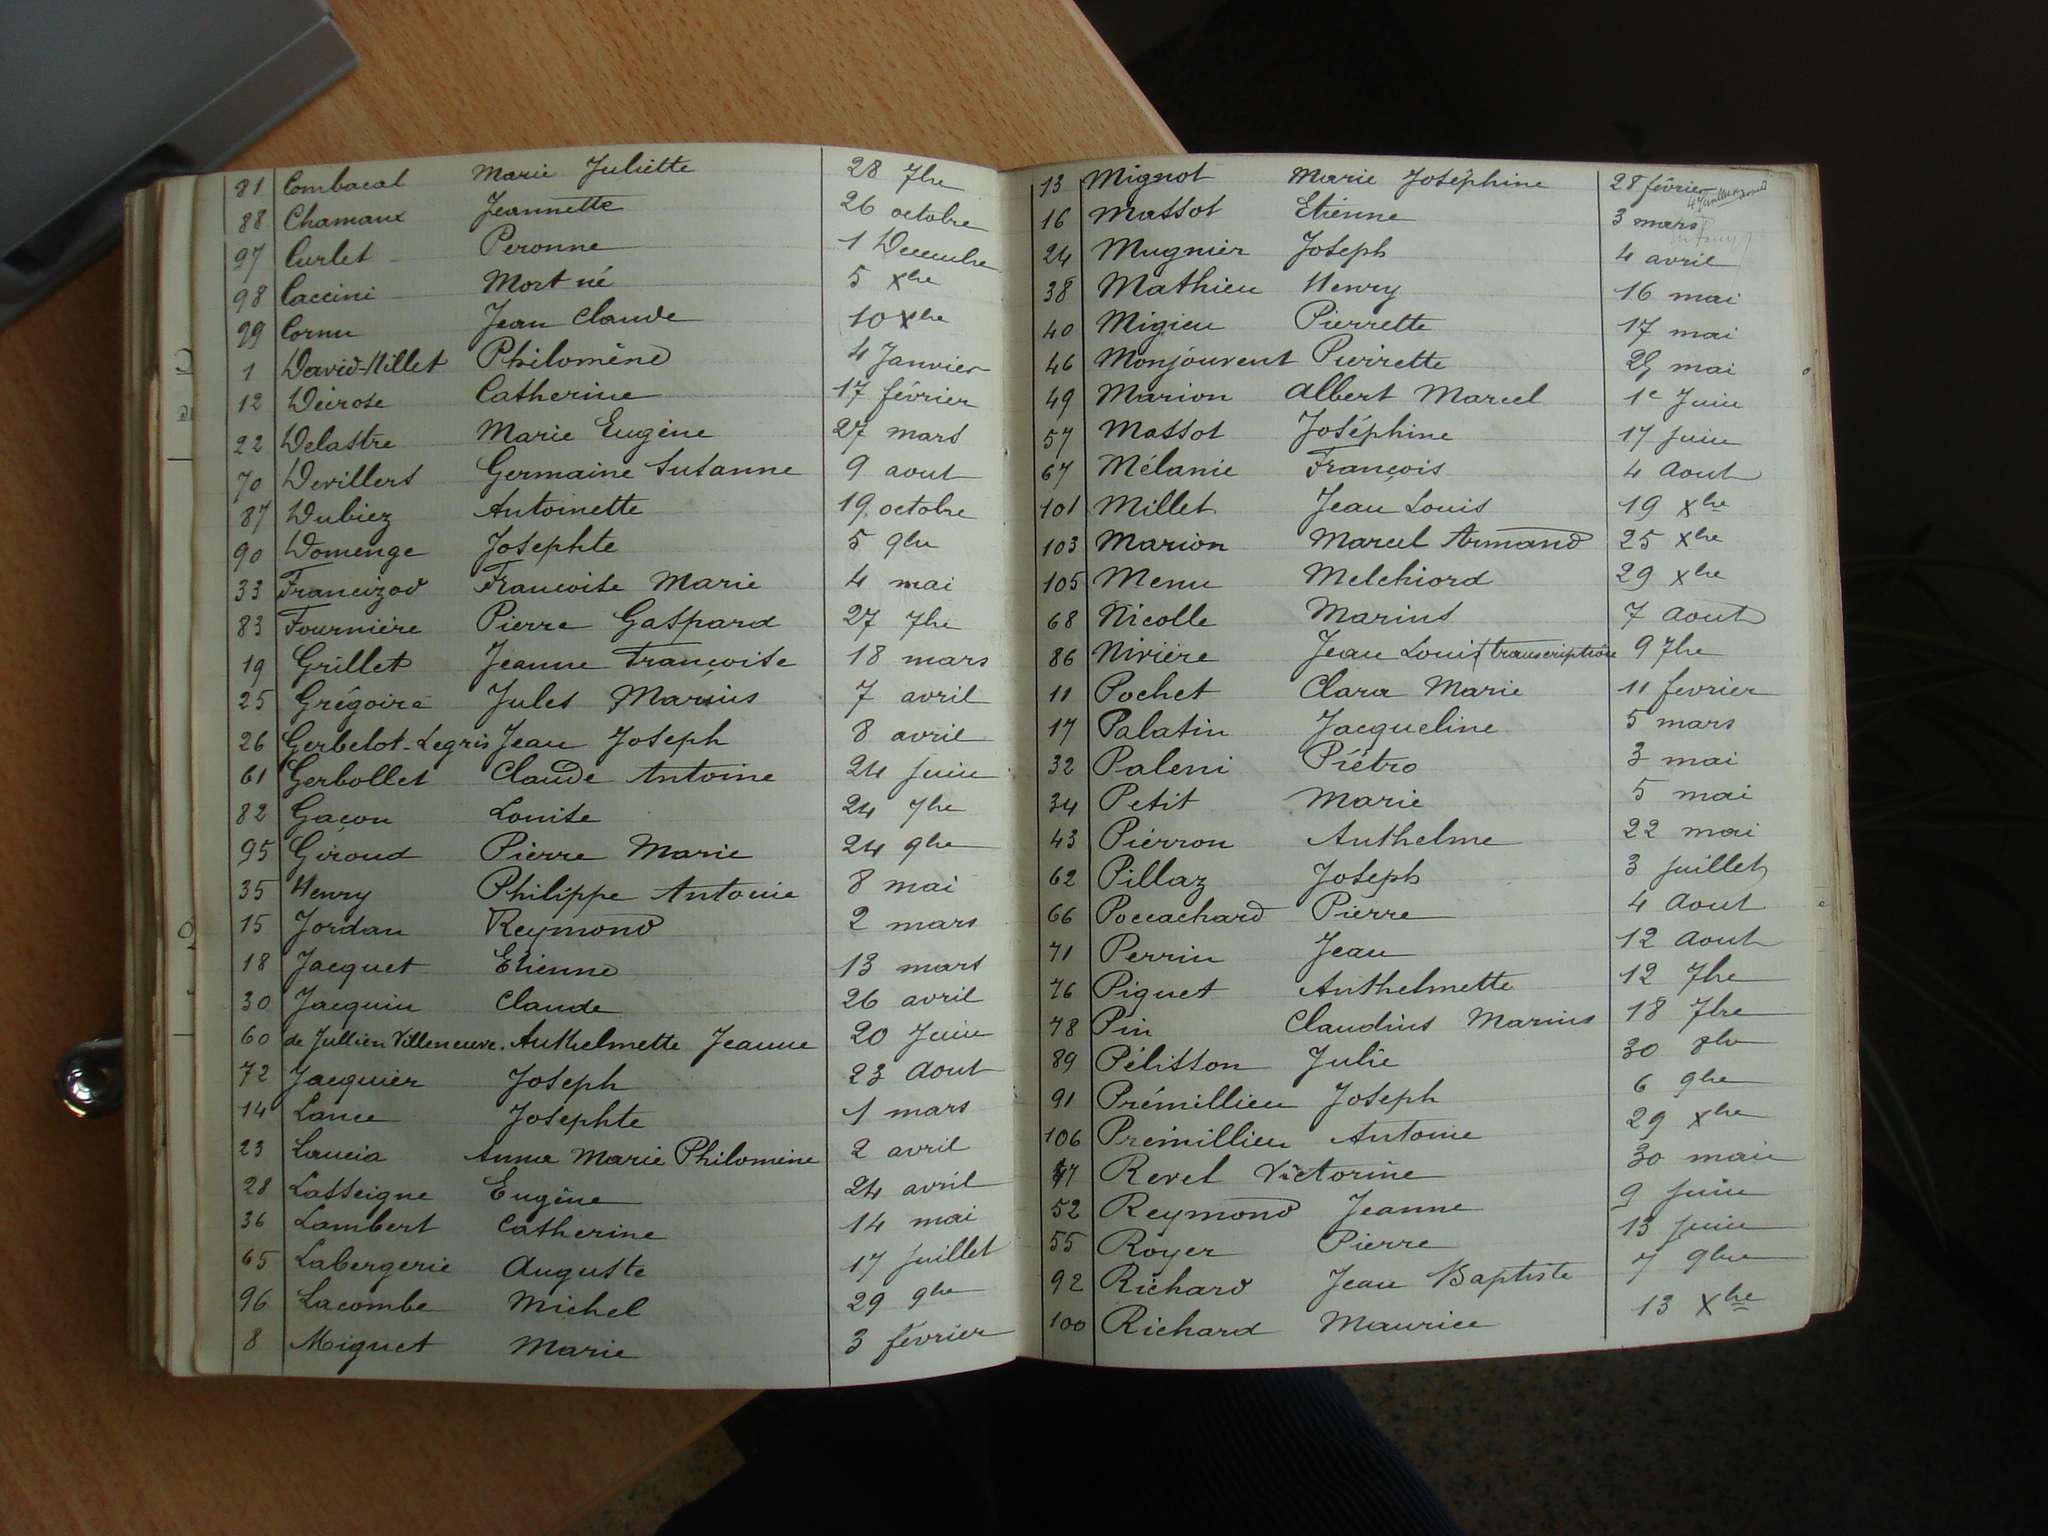 81 Combacal Marie Juliette 28 7bre
88 Chamaux Jeannette 26 octobre
97 Curlet Peronne 1 Decembre
98 Caccini Mort né 5 Xbre
99 Cornu Jean Claude 10 Xbre
1 David-Nillet Philomène 4 Janvier
12 Deirose Catherine 17 février
22 Delastre Marie Eugène 27 mars
70 Devillers Germaine Susanne 9 aout
87 Dubiez Antoinette 19 octobre
90 Domenge Josephte 5 9bre
33 Francizod Francoise Marie 4 mai
83 Fournière Pierre Gaspard 27 7bre
19 Grillet Jeanne Françoise 18 mars
25 Grégoire Jules Marius 7 avril
26 Gerbelot-Legris Jean Joseph 8 avril
61 Gerbollet Claude Antoine 24 Juin
82 Gaçon Louise 24 7bre
95 Giroud Pierre Marie 24 9bre
35 Henry Philippe Antoine 8 mai
15 Jordan Reymond 2 mars
18 Jacquet Etienne 13 mars
30 Jacquin Claude 26 avril
60 de Jullien Villeneuve. Anthelmette Jeanne 20 Juin
72 Jacquier Joseph 23 Aout
14 Lance Josephte 1 mars
23 Lancia Anna Marie Philomène 2 avril
28 Lasseigne Eugène 24 avril
36 Lambert Catherine 14 mai
65 Labergerie Auguste 17 Juillet
96 Lacombe Michel 29 9bre
8 Miguet Marie 3 février
13 Mignot Marie Joséphine 28 février
16 Massot Etienne 3 mars
24 Mugnier Joseph 4 avril
38 Mathieu Henry 16 mai
40 Migieu Pierrette 17 mai
46 Monjouvent Pierrette 25 mai
49 Marion Albert Marcel 1e Juin
57 Massot Joséphine 17 Juin
67 Mélanie François 4 Aout
101 Millet Jean Louis 19 Xbre
103 Marion Marcel Armand 25 Xbre
105 Menu Melchiord 29 Xbre
68 Nicolle Marius 7 Aout
86 Nivière Jean Louis transcription 9 7bre
11 Pochet Clara Marie 11 fevrier
17 Palatin Jacqueline 5 mars
32 Paleni Piétro 3 mai
34 Petit Marie 5 mai
43 Piérron Anthelme 22 mai
62 Pillaz Joseph 3 Juillet
66 Poccachard Pierre 4 Aout
71 Perrin Jean 12 Aout
76 Piquet Anthelmette 12 7bre
78 Pin Claudius Marius 18 7bre
89 Pélisson Julie 30 8bre
91 Prémillieu Joseph 6 9bre
106 Prémillieu Antoine 29 Xbre
47 Revel Victorine 30 mai
52 Reymond Jeanne 9 Juin
55 Royer Pierre 13 Juin
92 Richard Jean Baptiste 7 9bre
100 Richard Maurice 13 Xbre